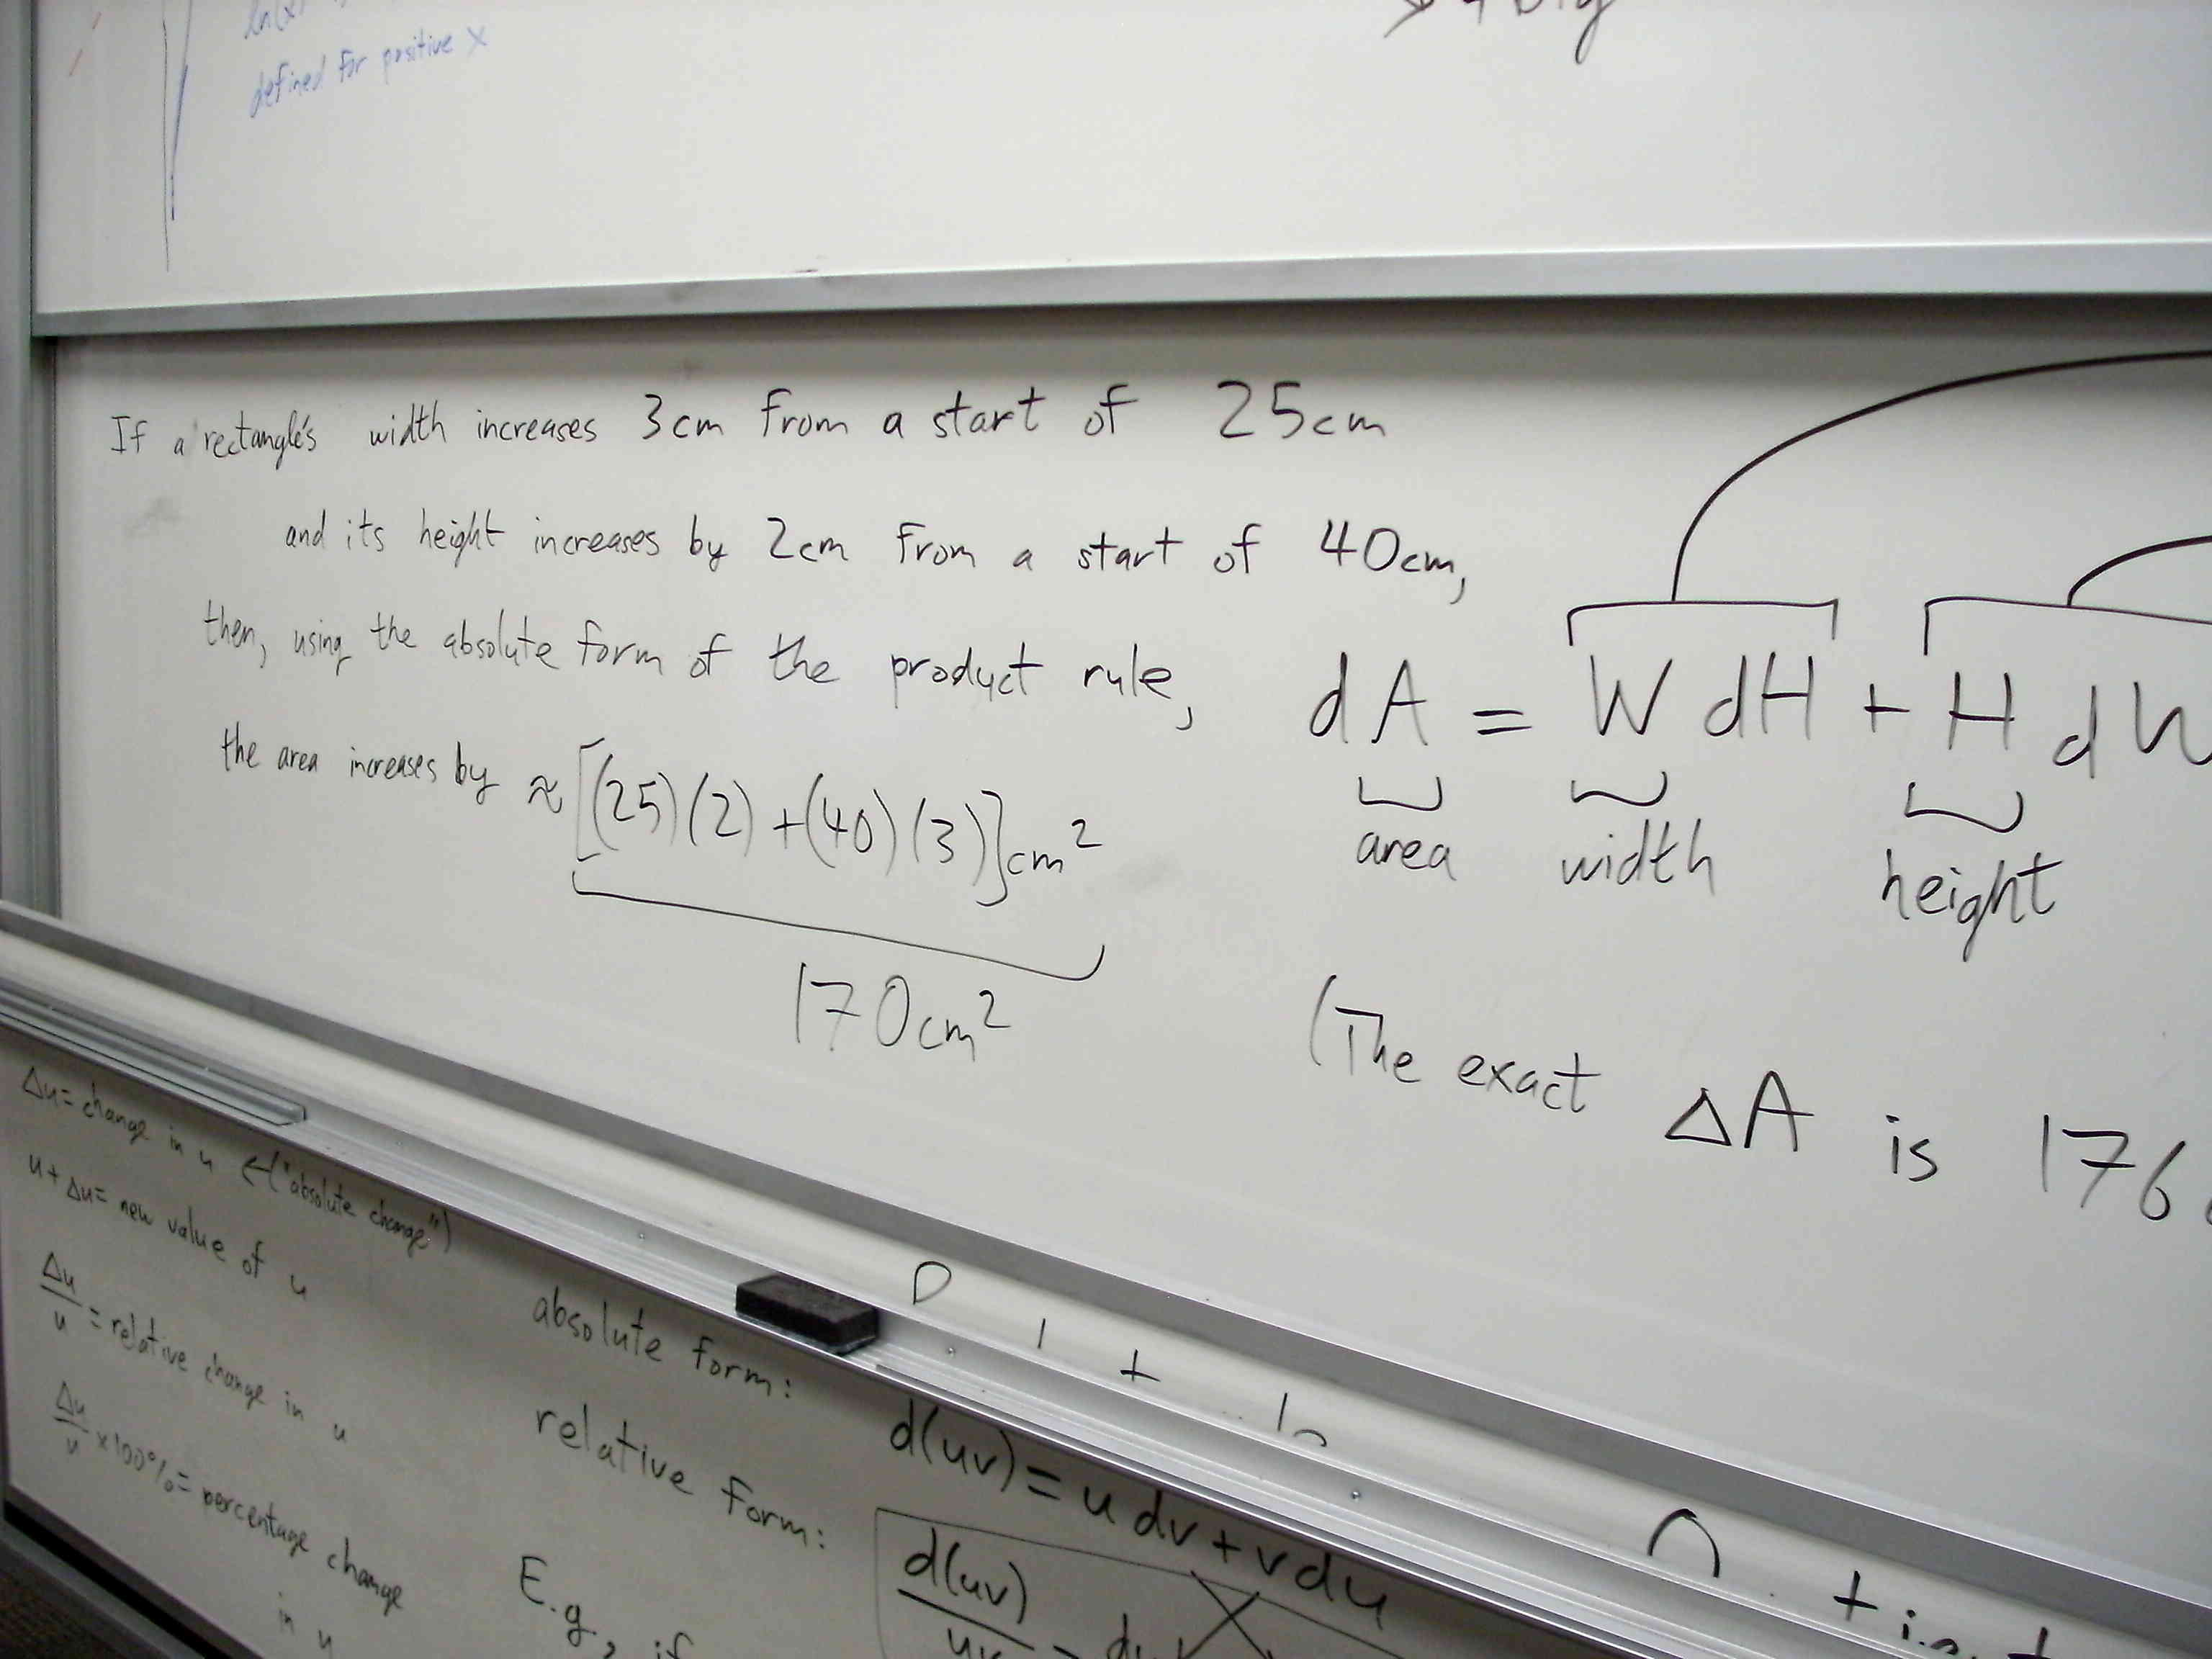 ln(x)
defined for positive x
If a rectangle's width increases 3cm from a start of 25cm
and its height increases by 2cm from a start of 40cm,
then, using the absolute form of the product rule,
dA = W dH + H d
area width height
the area increases by ≈ [(25)(2) + (40)(3)] cm²
170cm²
(The exact ΔA is 176
Δu = change in u ← ("absolute change")
u + Δu = new value of u
Δu/u = relative change in u
Δu/u × 100% = percentage change
in u
absolute form: d(uv) = u dv + v du
relative form: d(uv)/uv
E.g., if